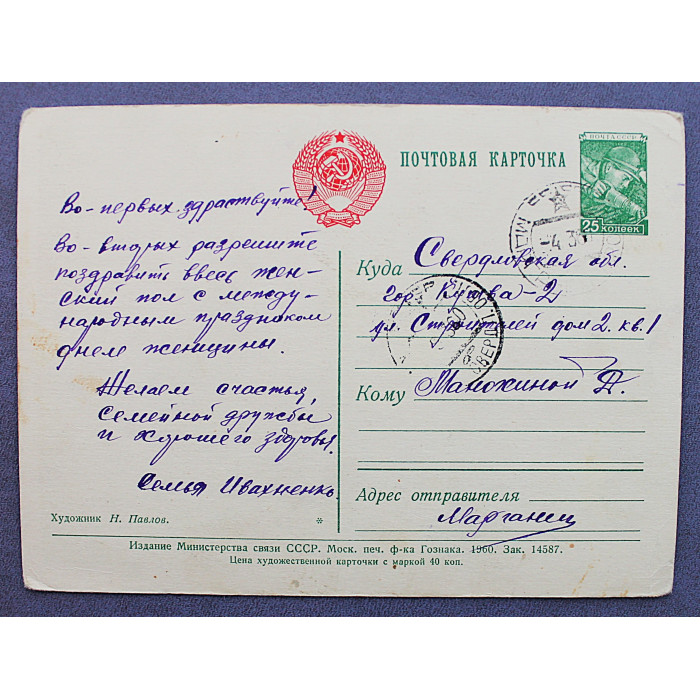 ПОЧТОВАЯ КАРТОЧКА
ПОЧТА СССР
25 КОПЕЕК
Во-первых здравствуйте!
Во-вторых разрешите
поздравить ввесь жен-
ский пол с между-
народным праздником
днем женщины.
Желаем счастья,
семейной дружбы
и хорошего здоровья.
Семья Ивахненко.
Художник Н. Павлов. *
Куда Свердловская обл.
гор. Кушва-2
ул. Строителей дом 2. кв. 1
Кому Манохиной Д.
Адрес отправителя
Марганец
-4 3
Издание Министерства связи СССР. Моск. печ. ф-ка Гознака. 1960. Зак. 14587.
Цена художественной карточки с маркой 40 коп.